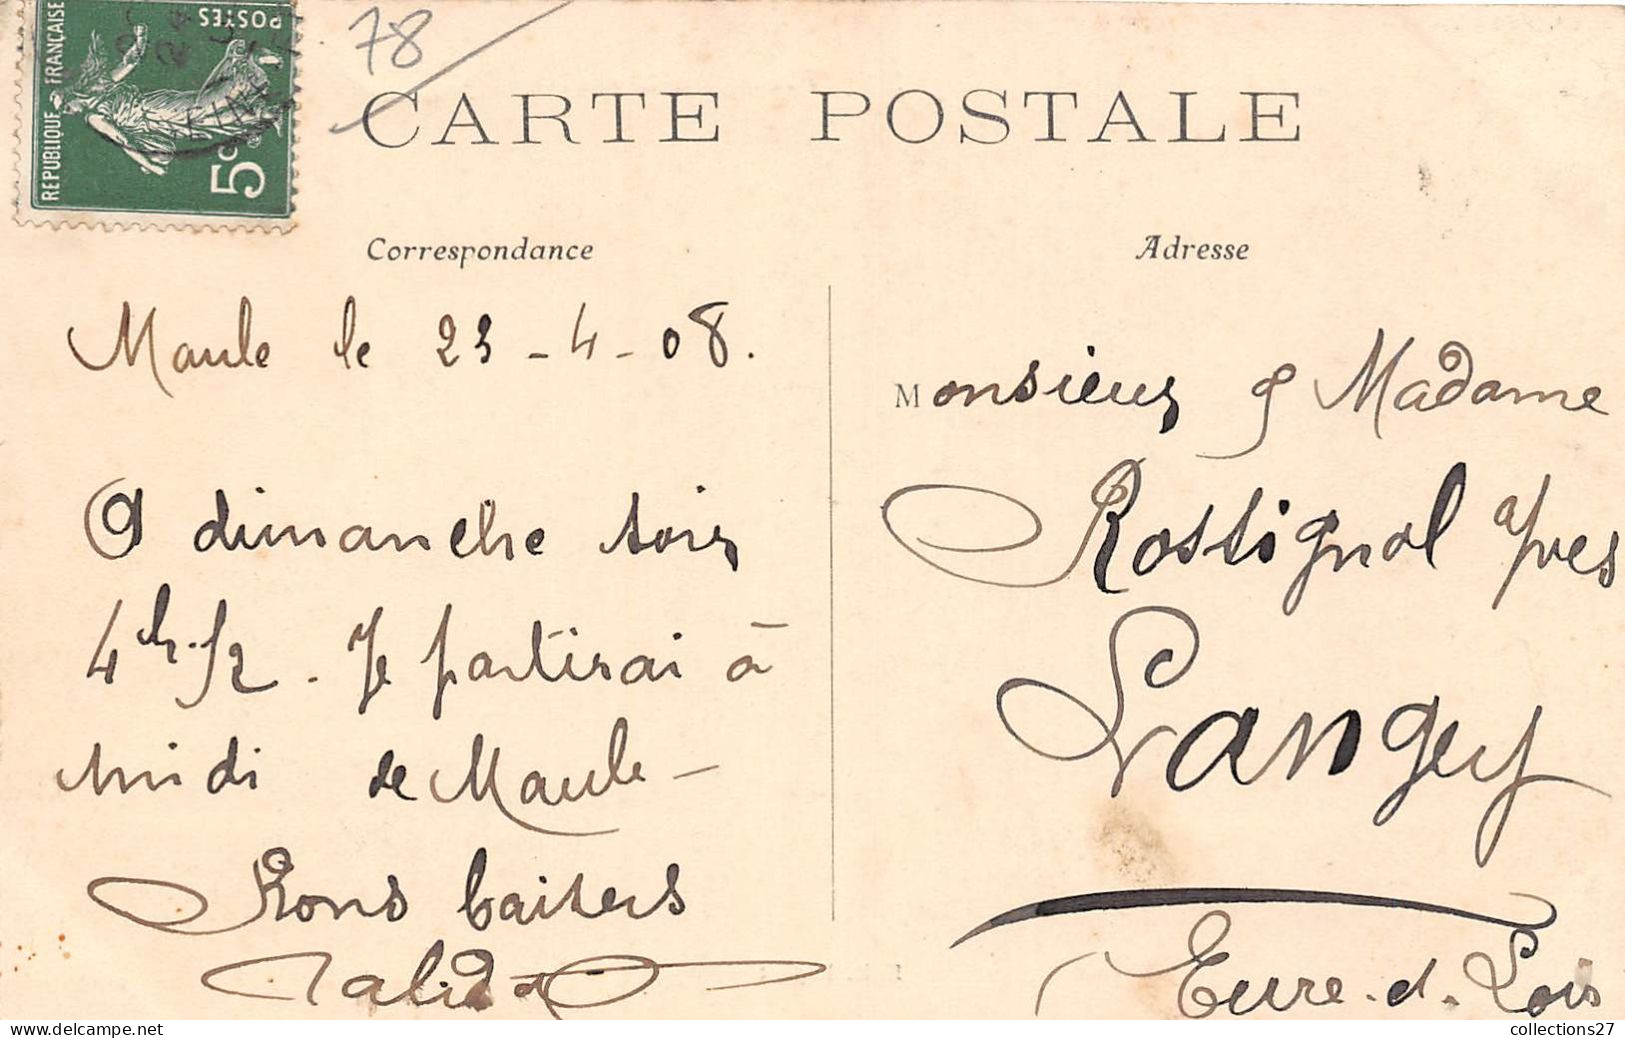 78
POSTES
REPUBLIQUE FRANÇAISE
5c
CARTE POSTALE
Correspondance
Adresse
Maule le 23-4-08.
A dimanche soir
4h 1/2. Je partirai à
midi de Maule-
Bons baisers
Monsieur & Madame
Rossignol Yves
Langey
Eure-et-Loir
collections27